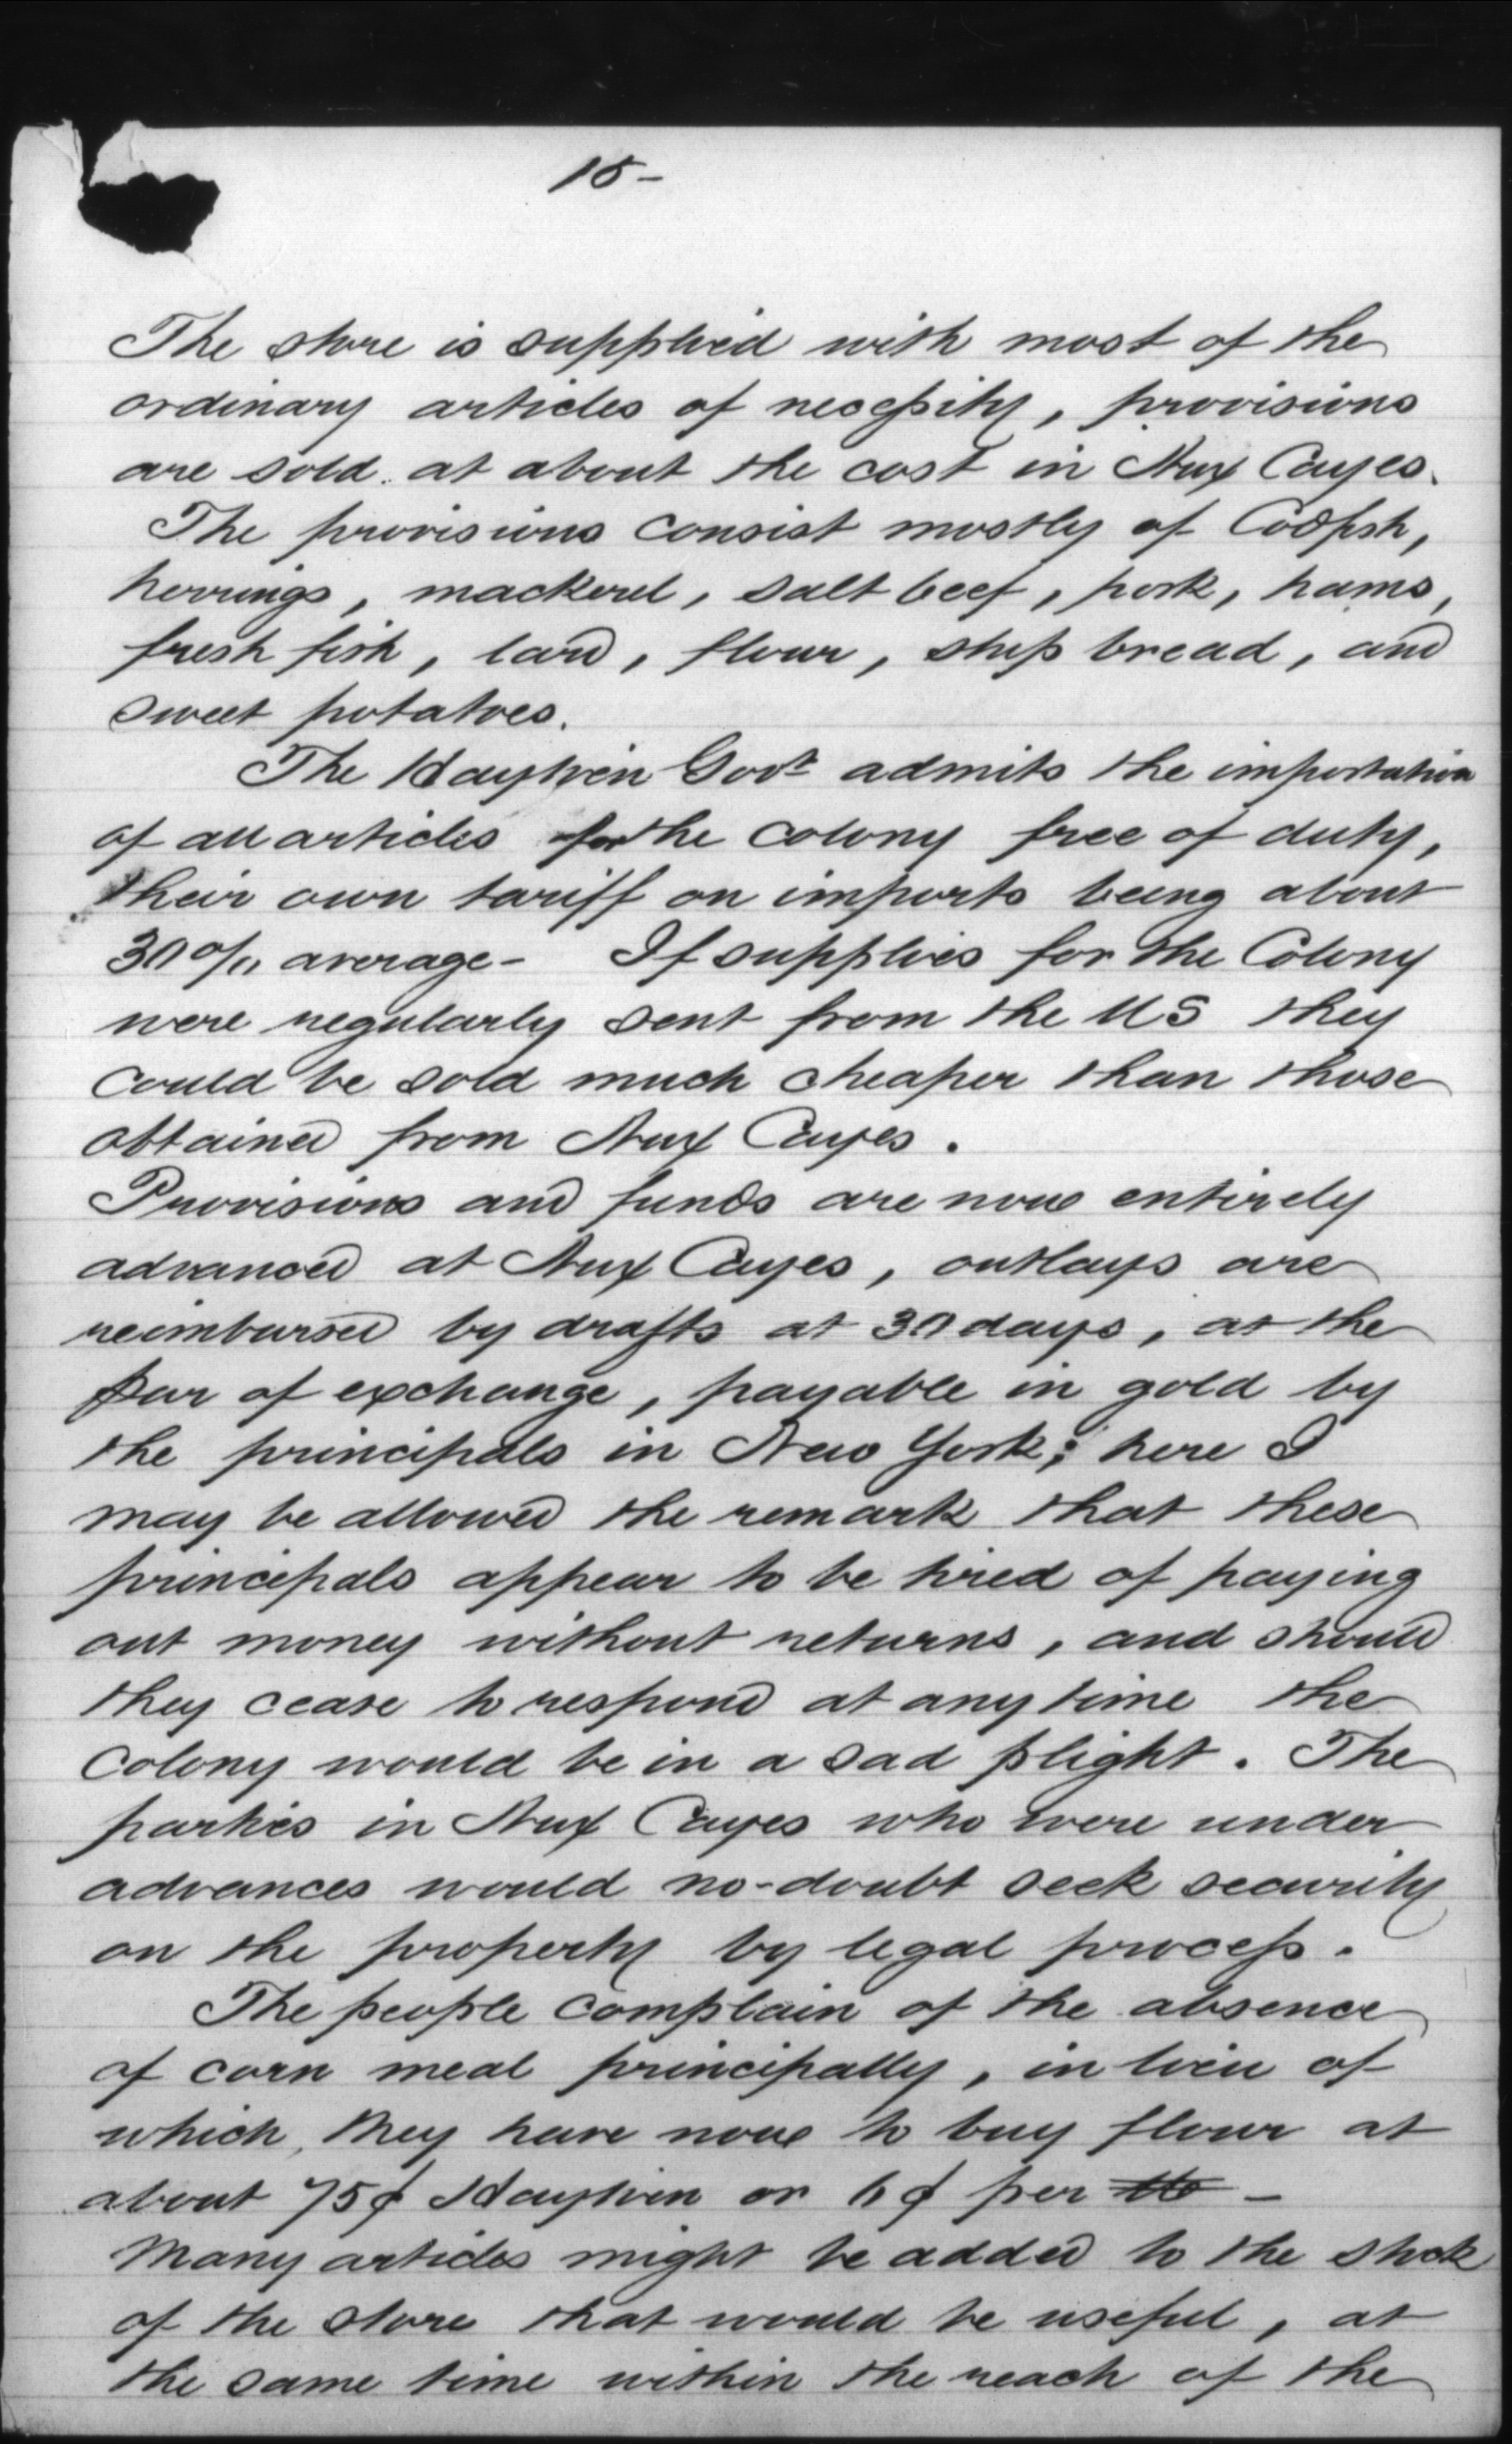 15-
The store is supplied with most of the
ordinary articles of necessity, provisions
are sold at about the cost in Aux Cayes.
The provisions consist mostly of Codfish,
herrings, mackerel, salt beef, pork, hams,
fresh fish, lard, flour, ship bread, and
sweet potatoes.
The Haytien Govt admits the importation
of all articles for the colony free of duty,
their own tariff on imports being about
30% average- If supplies for the Colony
were regularly sent from the US they
could be sold much cheaper than those
obtained from Aux Cayes.
Provisions and funds are now entirely
advanced at Aux Cayes, outlays are
reimbursed by drafts at 30 days, at the
par of exchange, payable in gold by
the principals in New York; here I
may be allowed the remark that these
principals appear to be tired of paying
out money without returns, and should
they cease to respond at any time the
colony would be in a sad plight. The
parties in Aux Cayes who were under
advances would no-doubt seek security
on the property by legal process.
The people complain of the absence
of corn meal principally, in lieu of
which, they have now to buy flour at
about 75¢ Haytien or 6¢ per lb -
Many articles might be added to the stock
of the store that would be useful, at
the same time within the reach of the